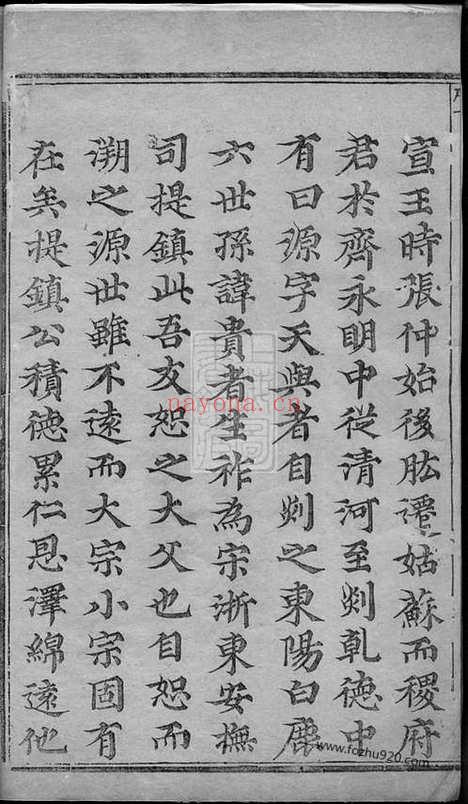 宣王時張仲始後肱遷姑蘇而稷府
君於齊永明中從清河至剡乾德中
有曰源字天與者自剡之東陽白鹿
六世孫諱貴者生祚為宗浙東安撫
司提鎮此吾友恕之大父也自恕而
溯之源世雖不遠而大宗小宗固有
在矣提鎮公積德累仁恩澤綿遠他
nayona.cn
www.fozhu920.com